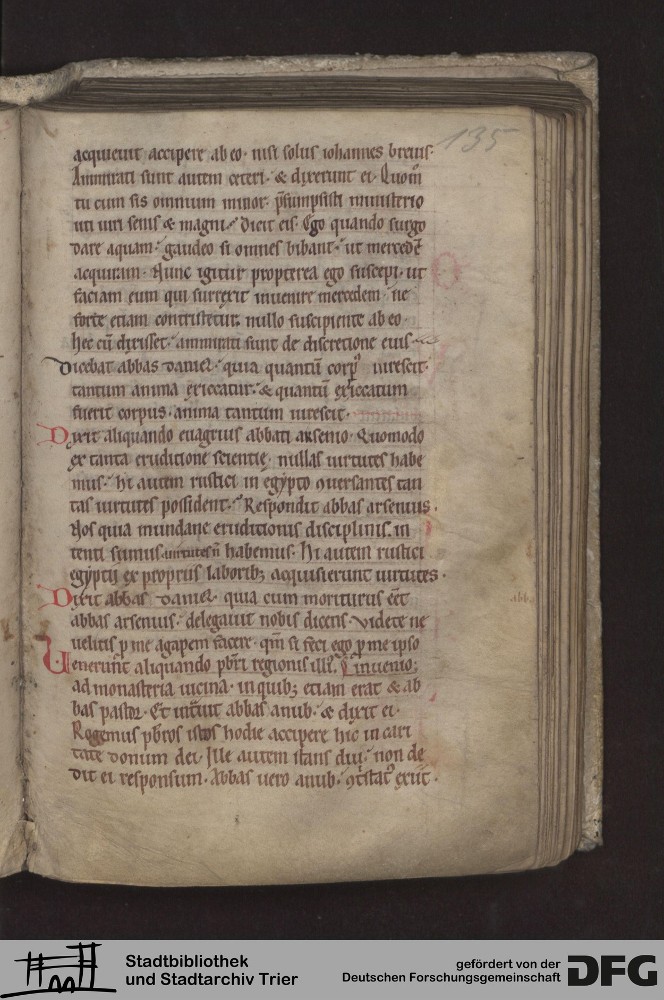 135
acquieuit accipere ab eo · nisi solus iohannes breuis ·
Ammirati sunt autem ceteri · & dixerunt ei · Quom̅
tu cum sis omnium minor · p̅sumpsisti ministerio
uti uiri senis & magni · Dicit eis · Ego quando surgo
dare aquam · gaudeo si omnes bibant · ut mercede̅
acquiram · Nunc igitur propterea ego suscepi · ut
faciam eum qui surrexit inuenire mercedem · ne
forte etiam contristetur · nullo suscipiente ab eo ·
hec cu̅ dixisset · ammirati sunt de discretione eius
Dicebat abbas daniel · quia quantu̅ corp᷒ uirescit ·
tantum anima exiccatur · & quantu̅ exiccatum
fuerit corpus · anima tantum uirescit ·
Dixit aliquando euagrius abbati arsenio · Quomodo
ex tanta eruditione scientie · nullas uirtutes habe
mus · hi autem rustici in egypto ꝯuersantes tan
tas uirtutes possident · Respondit abbas arsenius ·
Nos quia mundane eruditionis disciplinis in
tenti sumus · uirtutes n̅ habemus · Hi autem rustici
egyptii ex propriis laborib; acquisierunt uirtutes ·
Dixit abbas daniel · quia cum moriturus e̅et
abbas arsenius · delegauit nobis dicens · Videte ne
uelitis ꝓ me agapem facere · qm̅ si feci ego ꝓ me ipso
Uenerunt aliquando pb̅ri regionis illi᷒ inuenio;
ad monasteria uicina · in quib; etiam erat & ab
bas pastor · Et int̅uit abbas anub · & dixit ei ·
Rogemus pb̅ros istos hodie accipere hic in cari
tate donum dei · Ille autem stans diu · non de
dit ei responsum · Abbas uero anub · ꝯtristat᷒ exiit ·
abb
Stadtbibliothek
und Stadtarchiv Trier
gefördert von der
Deutschen Forschungsgemeinschaft
DFG